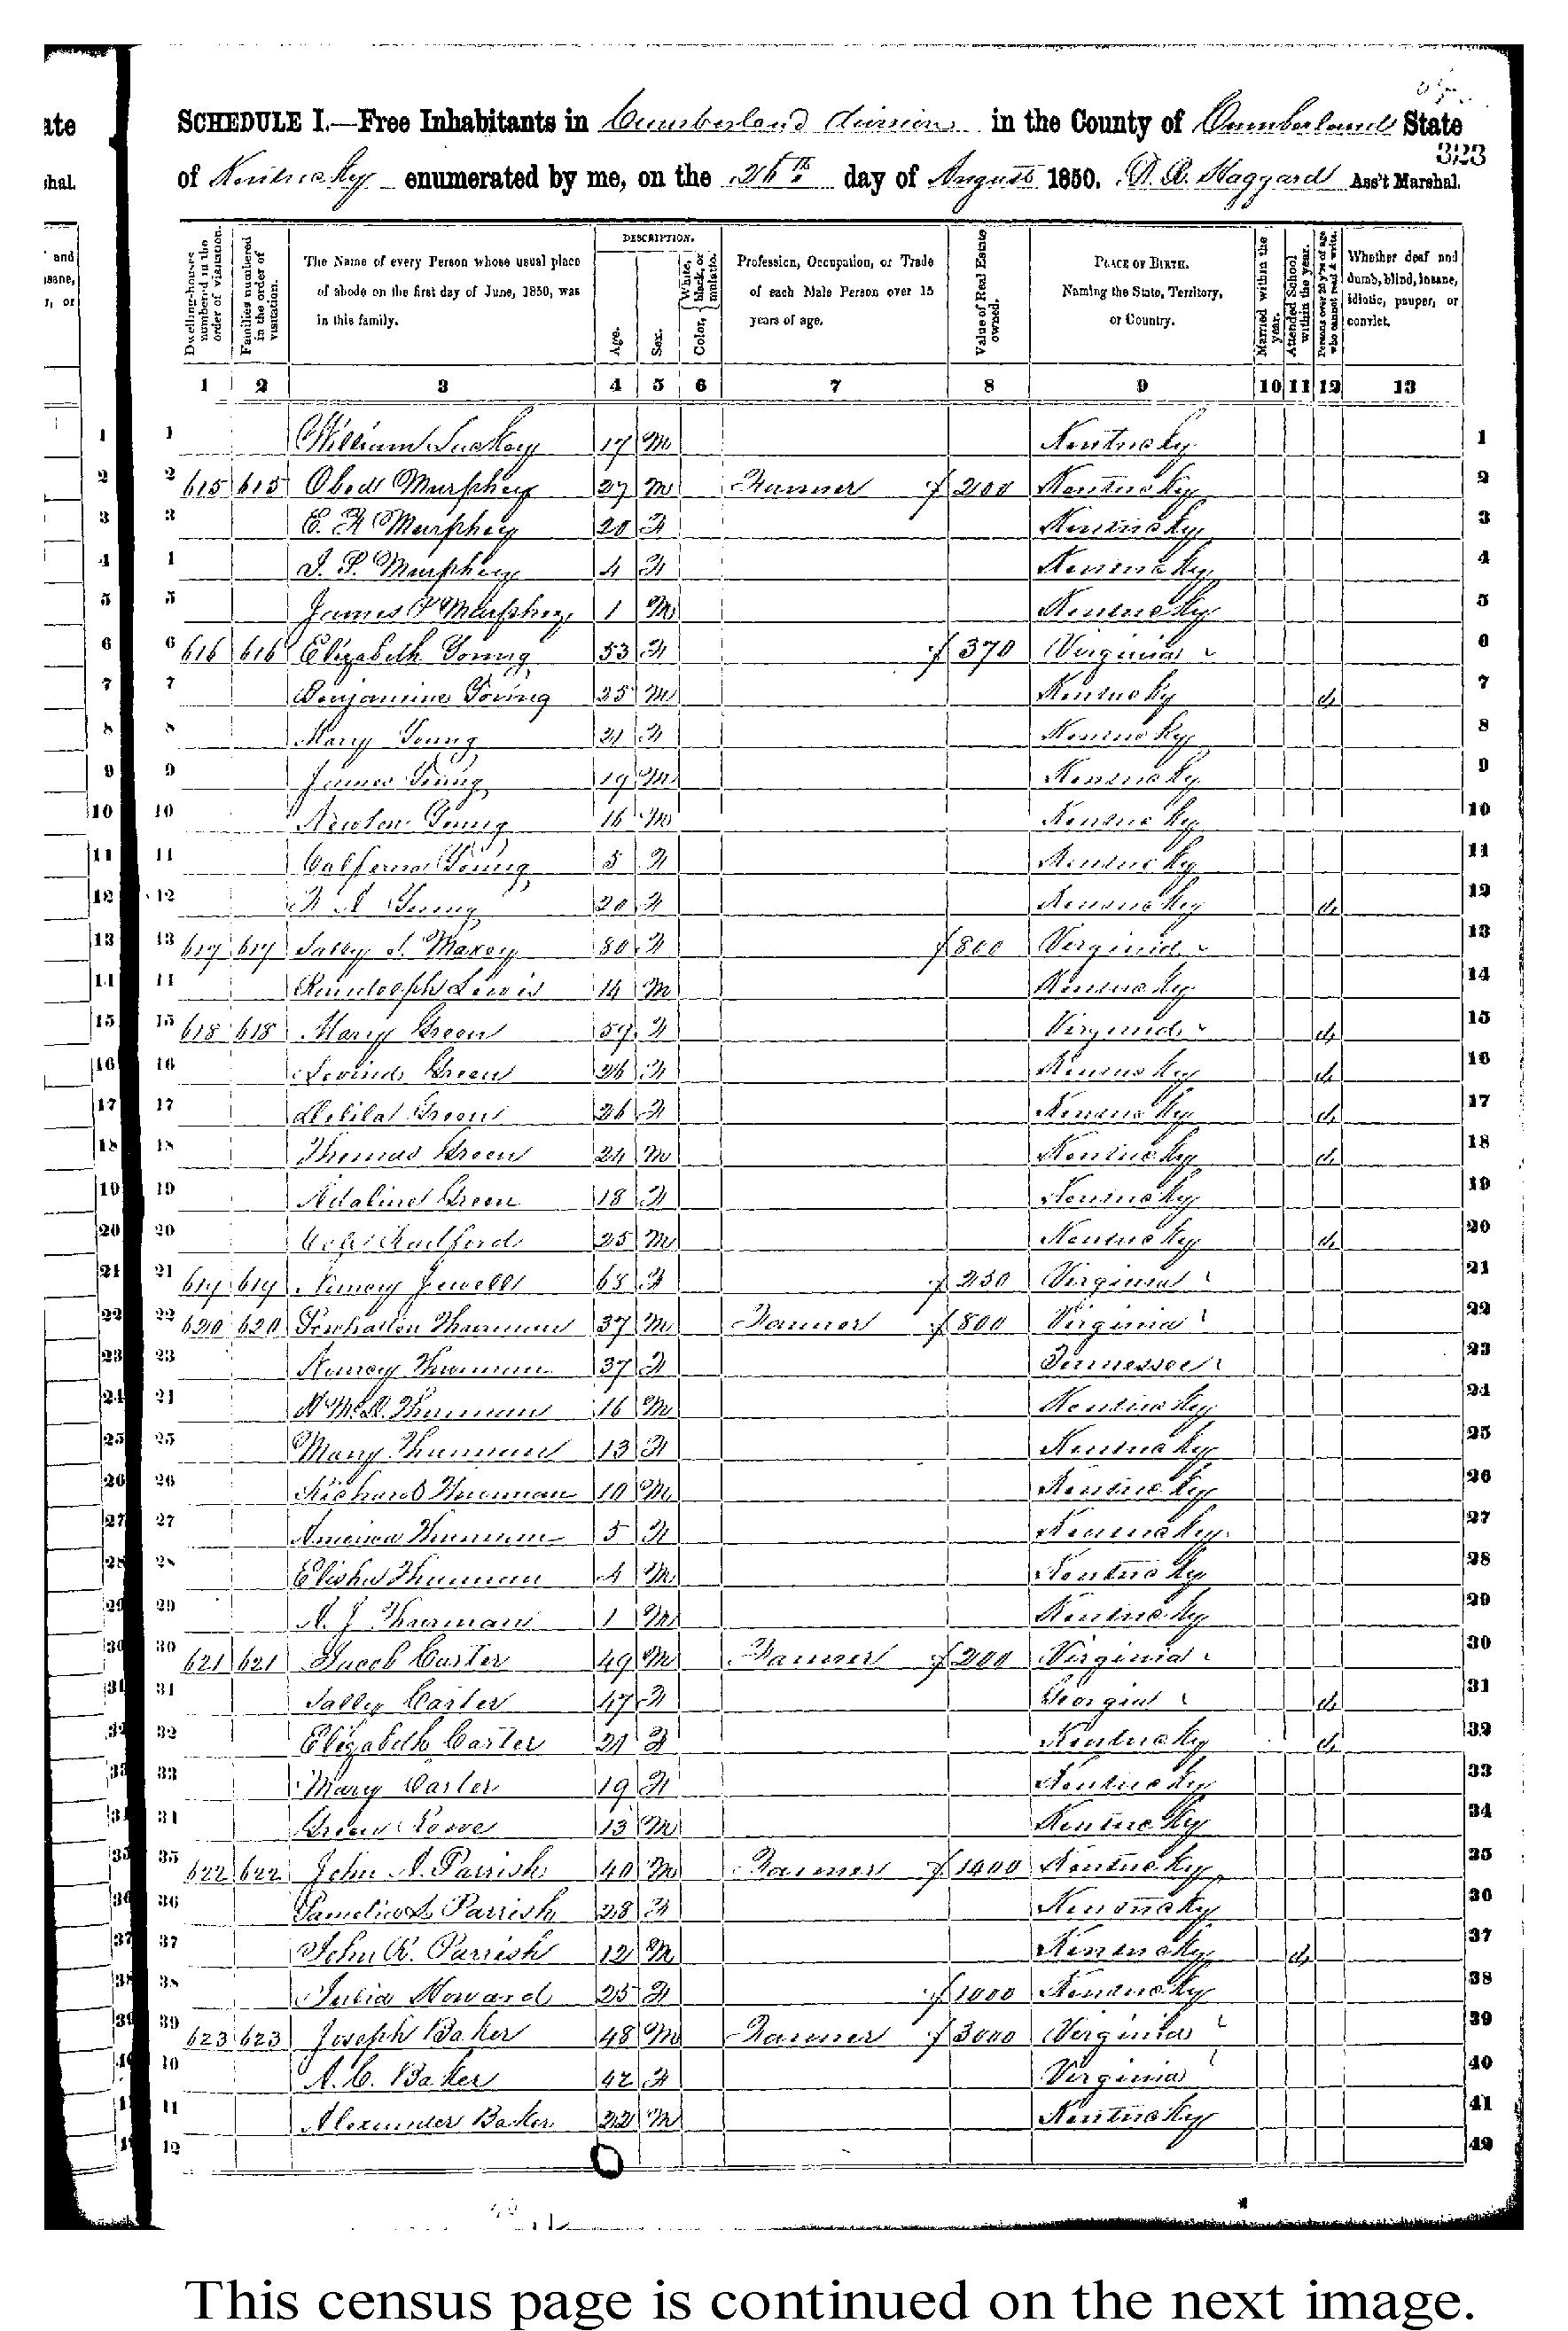 SCHEDULE I.—Free Inhabitants in Cumberland division in the County of Cumberland State
323
of Kentucky enumerated by me, on the 26th day of August 1850. Haggard Ass't Marshal.
Dwelling-houses numbered in the order of visitation.
Families numbered in the order of visitation.
The Name of every Person whose usual place of abode on the first day of June, 1850, was in this family.
DESCRIPTION.
Age.
Sex.
Color, White, black, or mulatto.
Profession, Occupation, or Trade of each Male Person over 15 years of age.
Value of Real Estate owned.
PLACE OF BIRTH. Naming the State, Territory, or Country.
Married within the year.
Attended School within the year.
Persons over 20 y'rs of age who cannot read & write.
Whether deaf and dumb, blind, insane, idiotic, pauper, or convict.
1 2 3 4 5 6 7 8 9 10 11 12 13
1 William 17 M Kentucky 1
2 615 615 Obed Murphey 27 M Farmer 200 Kentucky 2
3 E. F. Murphey 20 F Kentucky 3
4 Murphey 4 F Kentucky 4
5 James Murphey 1 M Kentucky 5
6 616 616 Elizabeth Young 53 F 370 Virginia 6
7 Benjamine Young 25 M Kentucky 7
8 Mary Young 21 F Kentucky 8
9 James Young 19 M Kentucky 9
10 Newton Young 16 M Kentucky 10
11 Young 5 F Kentucky 11
12 Young 20 F Kentucky 12
13 617 617 Sally Maxey 80 F 800 Virginia 13
14 Randolph Lewis 14 M Kentucky 14
15 618 618 Mary Green 59 F Virginia 15
16 Green 26 F Kentucky 16
17 Delila Green 26 F Kentucky 17
18 Thomas Green 24 M Kentucky 18
19 Adaline Green 18 F Kentucky 19
20 Radford 25 M Kentucky 20
21 619 619 Nancy Jewell 65 F 250 Virginia 21
22 620 620 Thurman 37 M Farmer 800 Virginia 22
23 Nancy Thurman 37 F Tennessee 23
24 Thurman 16 M Kentucky 24
25 Mary Thurman 13 F Kentucky 25
26 Richard Thurman 10 M Kentucky 26
27 America Thurman 5 F Kentucky 27
28 Elisha Thurman 4 M Kentucky 28
29 A. J. Thurman 1 M Kentucky 29
30 621 621 Jacob Carter 49 M Farmer 200 Virginia 30
31 Sally Carter 47 F Georgia 31
32 Elizabeth Carter 21 F Kentucky 32
33 Mary Carter 19 F Kentucky 33
34 Green 13 M Kentucky 34
35 622 622 John A. Parrish 40 M Farmer 1400 Kentucky 35
36 Pamelia Parrish 28 F Kentucky 36
37 John R. Parrish 12 M Kentucky 37
38 Julia Howard 25 F 1000 Kentucky 38
39 623 623 Joseph Baker 48 M Farmer 3000 Virginia 39
40 A. C. Baker 42 F Virginia 40
41 Alexander Baker 22 M Kentucky 41
42 42
This census page is continued on the next image.